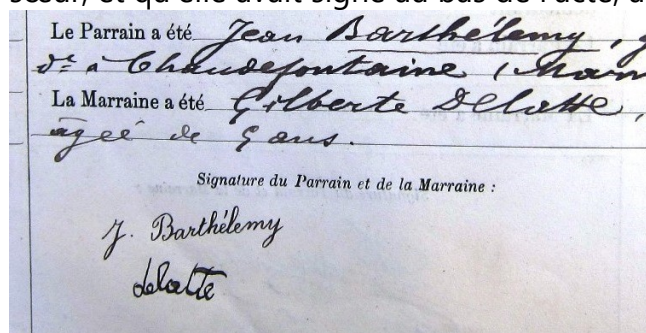 et qu'elle avait signé au bas de l'acte,
Le Parrain a été Jean Barthélemy,
dt à Chaudefontaine (Marn
La Marraine a été Gilberte Delatte,
âgée de 9 ans.
Signature du Parrain et de la Marraine :
J. Barthélemy
delatte